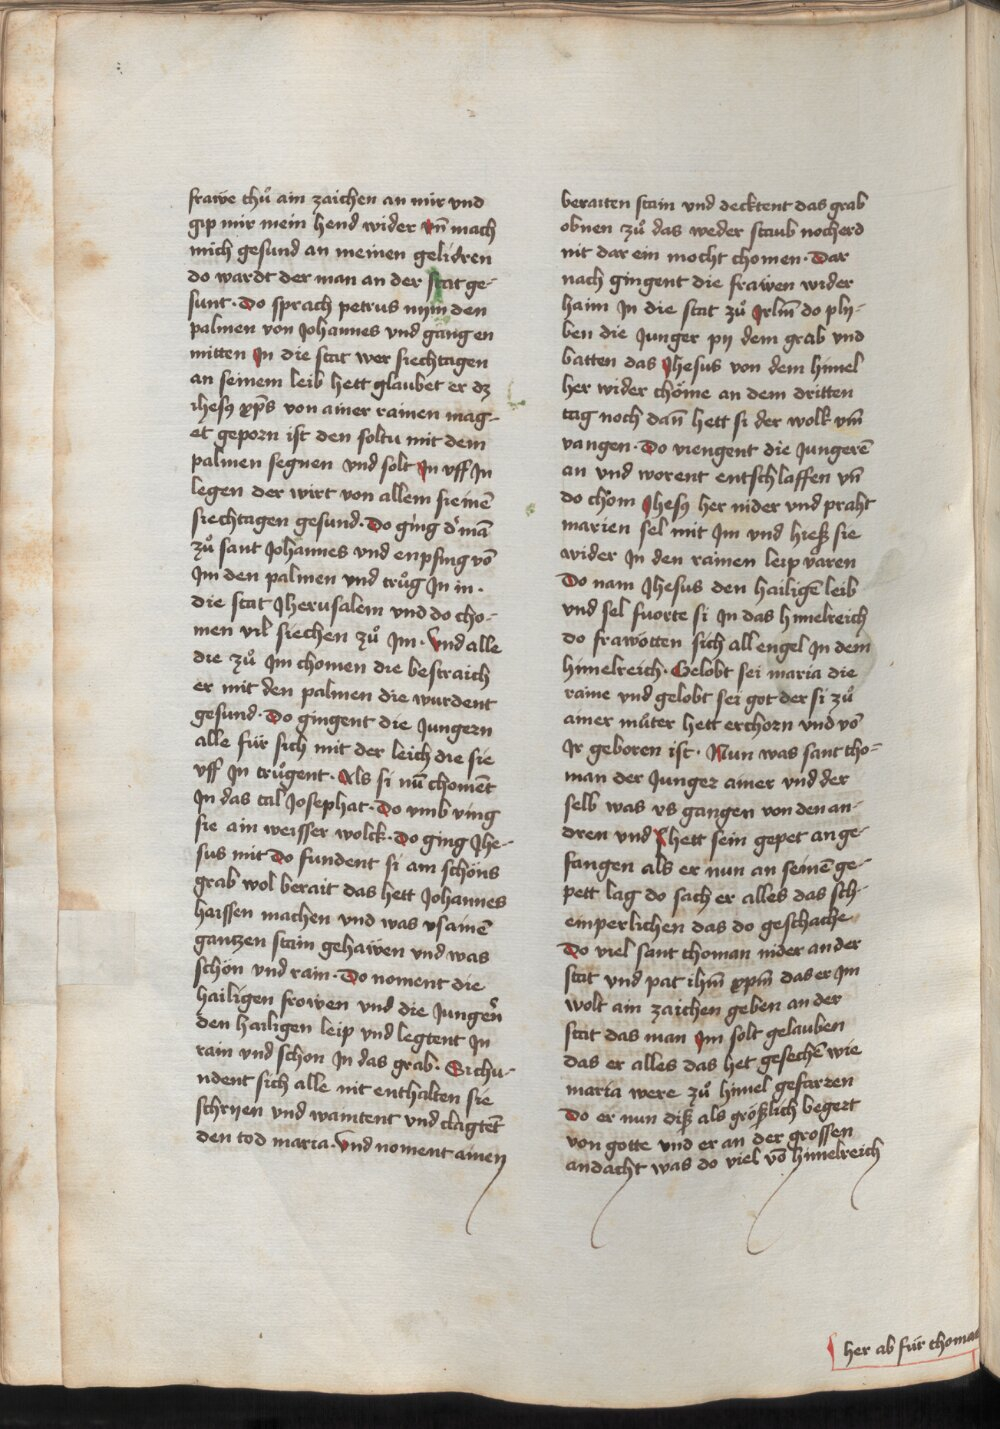 frawe thuͦ ain zaichen an mir vnd
gip mir mein hend wider vn̄ mach
mich gesund an meinen gelidren
do wardt der man an der stat ge-
sunt · Do sprach petrus nym den
palmen von Johannes vnd gang en
mitten Jn die stat wer siechtagen
an seinem leib hett glaubet er dz
ihesꝰ xp̄s von ainer rainen mag-
et geporn ist den soltu mit dem
palmen segnen vnd solt Jn vff Jn
legen der wirt von allem sienē
siechtagen gesund · Do ging d' mā
zuͦ sant Johannes vnd enpfing vō
Jm den palmen vnd truͦg Jn in ·
die stat Jherusalem vnd do cho-
men vil siechen zuͦ Jm · Vnd alle
die zuͦ Jm chomen die bestraich
er mit den palmen die wurdent
gesund · Do gingent die Jungern
alle für sich mit der leich die sie
vff Jn truͦgent · Als si nū chomēt
Jn das tal Josephat · Do vmb ving
sie ain weisser wolck · Do ging Jhe-
sus mit Do fundent si am schöns
grab wol berait das hett Johannes
haissen machen vnd was vsainē
gantzen stain gehawen vnd was
schön vnd rain · Do noment die
hailigen frowen vnd die Jungern̄
den hailigen leip vnd legtent Jn
rain vnd schon Jn das grab · Sichu-
ndent sich alle nit enthalten sie
schryen vnd wamtent vnd clagtēt
den tod maria · Vnd noment ainen
beraiten stain vnd decktent das grab
obnen zuͦ das weder staub noch erd
nit dar ein mocht chomen · Dar
nach gingent die frawen wider
haim Jn die stat zuͦ Jrlm̄ do ply-
ben die Junger py dem grab vnd
batten das Jhesus von dem himel
her wider chöme an dem dritten
tag noch dan̄ hett si der wolk vm̄
vangen · Do viengent die Jungerē
an vnd worent entschlaffen vn̄
do chom Jhesꝰ her nider vnd praht
marien sel mit Jm vnd hieß sie
wider Jn den rainen leip varen
Do nam Jhesus den hailigē leib
vnd sel fuorte si Jn das himelreich
do frawotten sich all engel Jn dem
himelreich · Gelobt sei maria die
raine vnd gelobt sei got der si zuͦ
ainer muͦter hett erchorn vnd vō
Jr geboren ist · Nun was sant tho-
man der Junger ainer vnd der
selb was vs gangen von den an-
dren vnd hett sein gepet an ge-
fangen als er nun an seinē ge-
pett lag do sach er alles das sch-
emperlichen das do geschache
Do viel sant thoman nider an der
stat vnd pat ihm̄ xpm̄ das er Jm
wolt ain zaichen geben an der
stat das man Jm solt gelauben
das er alles das het gesechē wie
maria were zuͦ himel gefarren
Do er nun diß als größlich begert
von gotte vnd er an der grossen
andacht was do viel vō himelreich
her ab für thoma